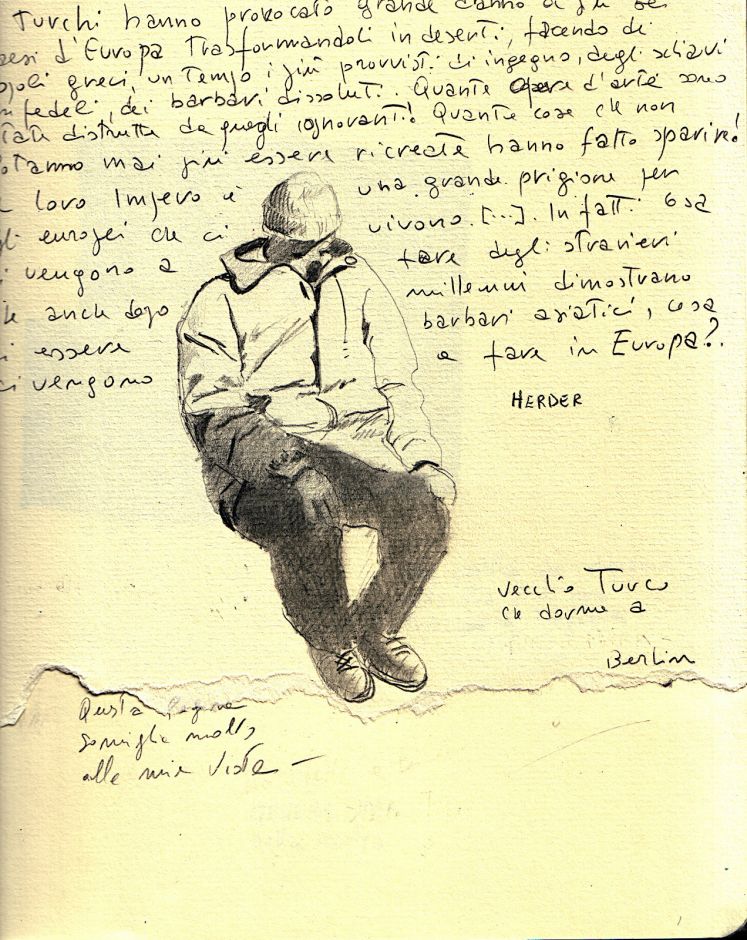 Turchi hanno provocato grande danno ai più bei
aesi d'Europa trasformandoli in deserti, facendo di
opoli greci, un tempo i più provvisti di ingegno, degli schiavi
nfedeli, dei barbari dissoluti. Quante opere d'arte sono
tate distrutte da quegli ignoranti! Quante cose che non
otranno mai più essere ricreate hanno fatto sparire!
l loro Impero è una grande prigione per
gli europei che ci vivono. [...]. Infatti cosa
i vengono a fare degli stranieri
he anche dopo millenni dimostrano
i essere barbari asiatici, cosa
ci vengono a fare in Europa?.
HERDER
vecchio Turco
che dorme a
Berlin
Questa pagina
somiglia molto
alla mia vista –